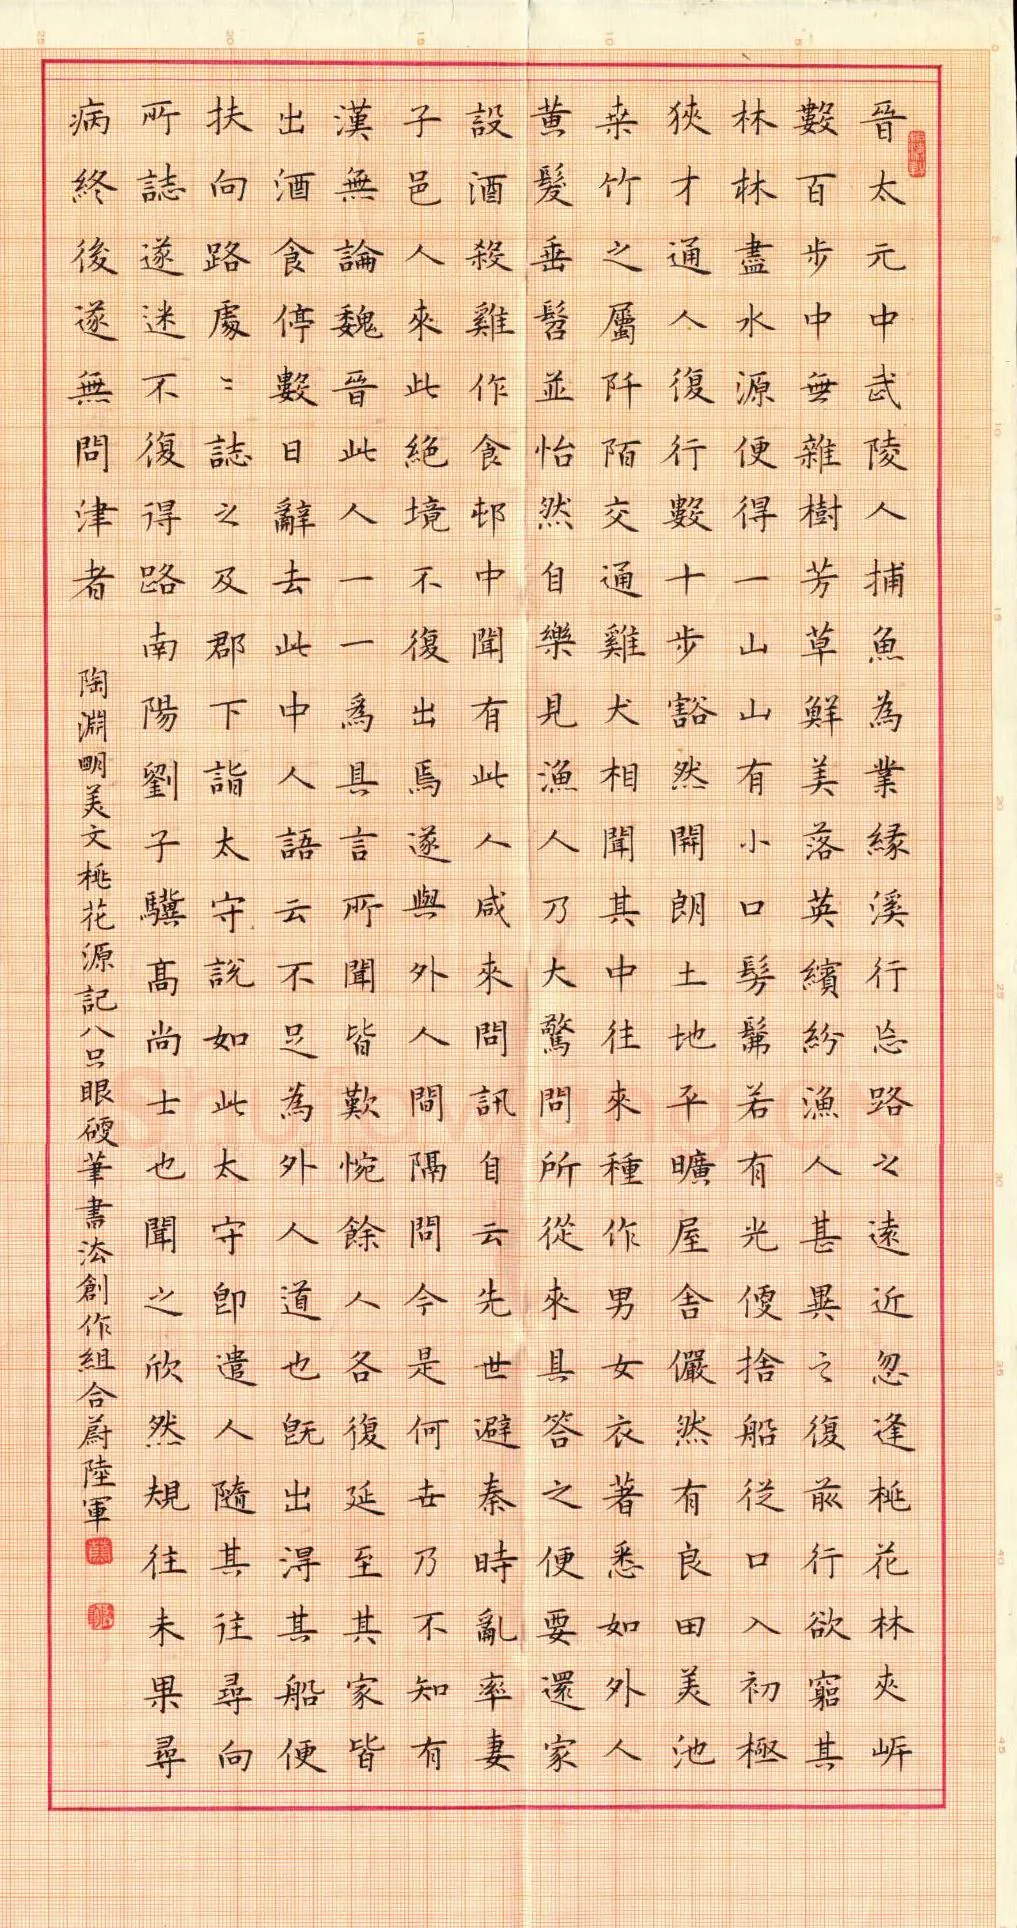 晉太元中武陵人捕魚為業緣溪行忘路之遠近忽逢桃花林夾岸
數百步中無雜樹芳草鮮美落英繽紛漁人甚異之復前行欲窮其
林林盡水源便得一山山有小口髣髴若有光便捨船從口入初極
狹才通人復行數十步豁然開朗土地平曠屋舍儼然有良田美池
桒竹之屬阡陌交通雞犬相聞其中往來種作男女衣著悉如外人
黃髮垂髫並怡然自樂見漁人乃大驚問所從來具答之便要還家
設酒殺雞作食邨中聞有此人咸來問訊自云先世避秦時亂率妻
子邑人來此絕境不復出焉遂與外人間隔問今是何世乃不知有
漢無論魏晉此人一一為具言所聞皆歎惋餘人各復延至其家皆
出酒食停數日辭去此中人語云不足為外人道也既出得其船便
扶向路處〻誌之及郡下詣太守說如此太守即遣人隨其往尋向
所誌遂迷不復得路南陽劉子驥高尚士也聞之欣然規往未果尋
病終後遂無問津者
陶淵明美文桃花源記八只眼硬筆書法創作組合蔚陸軍